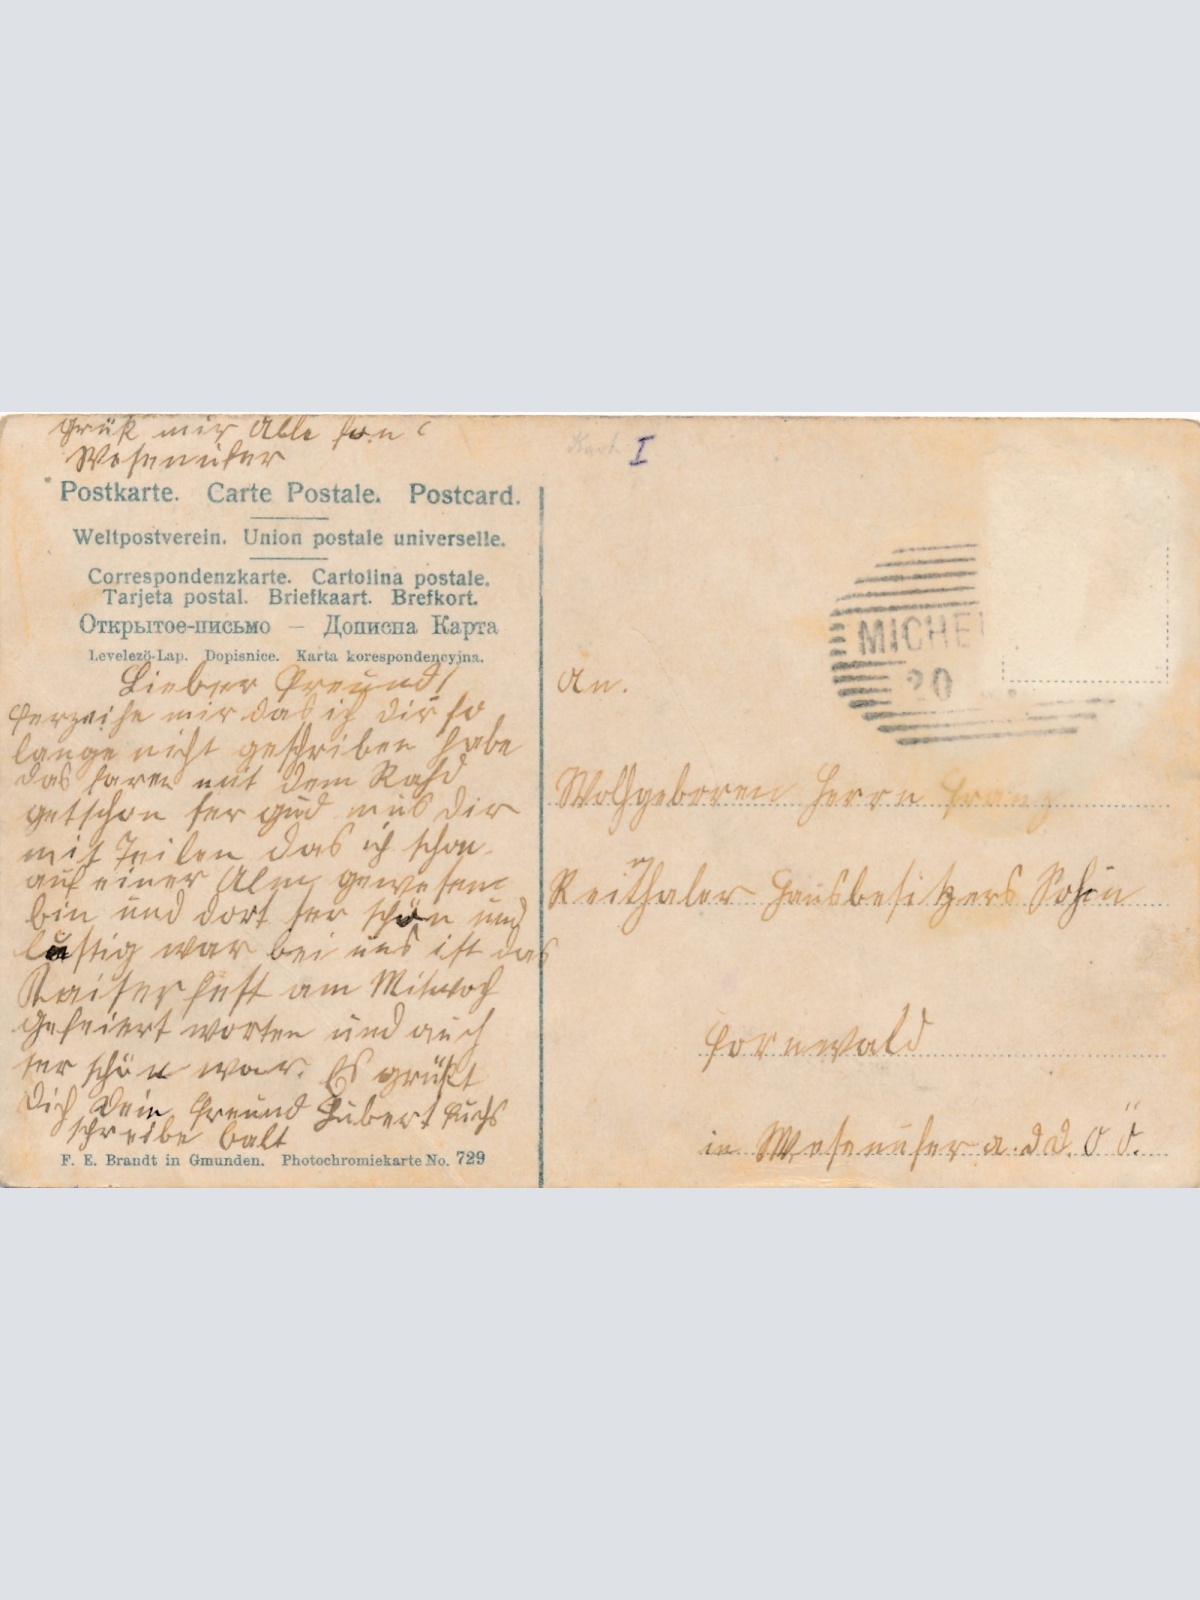 grüß mir Alle fon
Wesenufer
Postkarte. Carte Postale. Postcard.
Weltpostverein. Union postale universelle.
Correspondenzkarte. Cartolina postale.
Tarjeta postal. Briefkaart. Brefkort.
Открытое-письмо — Дописна Карта
Levelező-Lap. Dopisnice. Karta korespondencyjna.
Lieber Freund!
ferzeihe mir das ich dir so
lange nicht geschriben habe
das faren mit dem Rahd
getschon ser gud mus dir
mit Teilen das ich schon
auf einer Alm gewesen
bin und dort ser schön und
lustig war bei uns ist das
Kaiserfest am Mitwoch
gefeiert worten und auch
ser schön war. Es grüßt
Dich Dein Freund Hubert Fuchs
schreibe balt
F. E. Brandt in Gmunden. Photochromiekarte No. 729
I
MICHE
20
An.
Wohlgeboren Herrn Franz
Reithaler Hausbesitzers Sohn
Fornwald
in Wesenufer a. d D. O Ö.